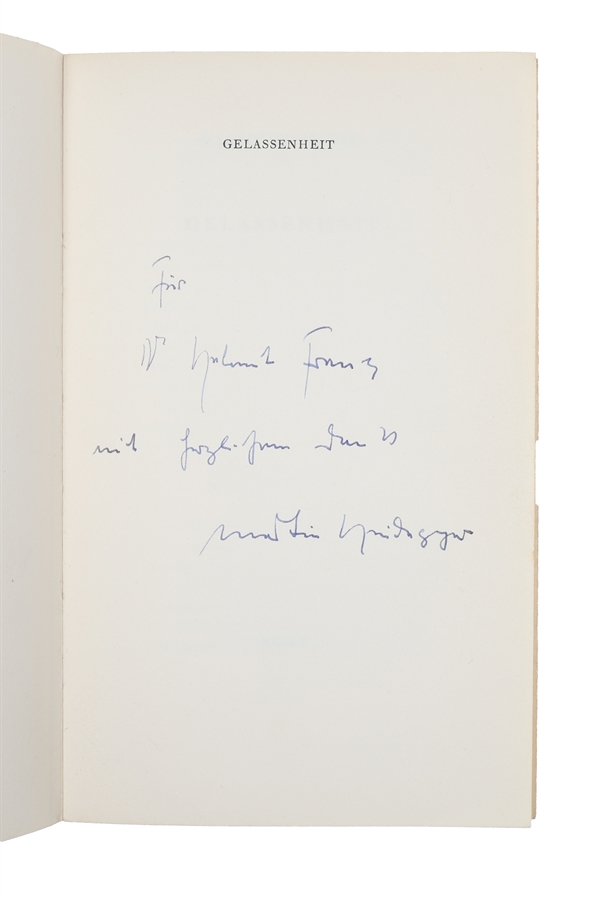 GELASSENHEIT
Für
Dr Helmut Franz
mit herzlichem Dank
Martin Heidegger